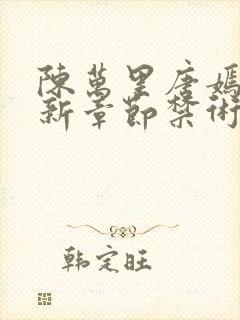 陳萬里唐嫣
新章節禁術
韩定旺